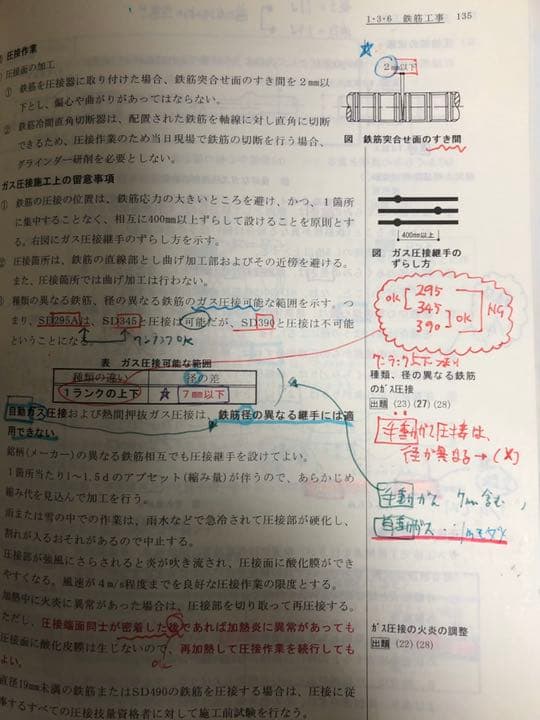 1・3・6 鉄筋工事 135
圧接作業
圧接面の加工
① 鉄筋を圧接器に取り付けた場合、鉄筋突合せ面のすき間を2mm以
下とし、偏心や曲がりがあってはならない。
② 鉄筋冷間直角切断器は、配置された鉄筋を軸線に対し直角に切断
できるため、圧接作業のため当日現場で鉄筋の切断を行う場合、
グラインダー研削を必要としない。
2mm以下
図 鉄筋突合せ面のすき間
ガス圧接施工上の留意事項
① 鉄筋の圧接の位置は、鉄筋応力の大きいところを避け、かつ、1箇所
に集中することなく、相互に400mm以上ずらして設けることを原則とす
る。右図にガス圧接継手のずらし方を示す。
② 圧接箇所は、鉄筋の直線部とし曲げ加工部およびその近傍を避ける。
また、圧接箇所では曲げ加工は行わない。
400mm以上
図 ガス圧接継手の
ずらし方
種類の異なる鉄筋、径の異なる鉄筋のガス圧接可能な範囲を示す。つ
まり、SD295Aは、SD345と圧接は可能だが、SD390と圧接は不可能
ということになる
ワンランクOK
OK 295
345
390 OK NG
表 ガス圧接可能な範囲
種類の違い 径の差
1ランクの上下 7mm以下
種類、径の異なる鉄筋
のガス圧接
出題 (23)(27)(28)
自動ガス圧接および熱間押抜ガス圧接は、鉄筋径の異なる継手には適
用できない
銘柄(メーカー)の異なる鉄筋相互でも圧接継手を設けてよい。
1箇所当たり1～1.5dのアプセット(縮み量)が伴うので、あらかじめ
縮み代を見込んで加工を行う。
雨または雪の中での作業は、雨水などで急冷されて圧接部が硬化し、
割れが入るおそれがあるので中止する。
圧接部が強風にさらされると炎が吹き流され、圧接面に酸化膜がで
きやすくなる。風速が4m/s程度までを良好な圧接作業の限度とする。
加熱中に火炎に異常があった場合は、圧接部を切り取って再圧接する。
ただし、圧接端面同士が密着した後であれば加熱炎に異常があっても
圧接面に酸化皮膜は生じないので、再加熱して圧接作業を続行しても
よい。
直径19mm未満の鉄筋またはSD490の鉄筋を圧接する場合は、圧接に従
事するすべての圧接技量資格者に対して施工前試験を行なう。
手動ガス 7mm含む,
ガス圧接の火炎の調整
出題 (22)(28)